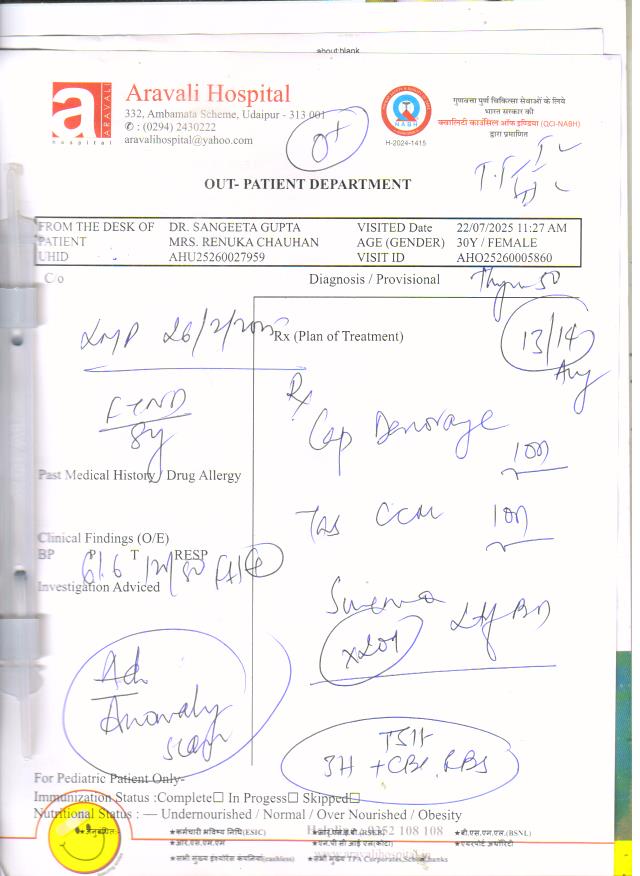 about:blank
a
ARAVALI
hospital
Aravali Hospital
332, Ambamata Scheme, Udaipur - 313 001
✆ : (0294) 2430222
aravalihospital@yahoo.com
O+
NABH
H-2024-1415
गुणवत्ता पूर्ण चिकित्सा सेवाओं के लिये
भारत सरकार की
क्वालिटी काउंसिल ऑफ इण्डिया (QCI-NABH)
द्वारा प्रमाणित
OUT- PATIENT DEPARTMENT
FROM THE DESK OF DR. SANGEETA GUPTA VISITED Date 22/07/2025 11:27 AM
PATIENT MRS. RENUKA CHAUHAN AGE (GENDER) 30Y / FEMALE
UHID AHU25260027959 VISIT ID AHO25260005860
C/o Diagnosis / Provisional
50
LMP 26/2/2025 Rx (Plan of Treatment) 13/14
Aug
Rx
FTND
8y
Cap
Past Medical History / Drug Allergy
Tab CCM
Clinical Findings (O/E)
BP P T RESP
Investigation Adviced
Adv
Anomaly
scan
TSH
3H + CBC, RBS
For Pediatric Patient Only-
Immunization Status :Complete☐ In Progess☐ Skipped☐
Nutritional Status : — Undernourished / Normal / Over Nourished / Obesity
Helpline : 9352 108 108
★अनुबंधित:- ★कर्मचारी भविष्य निधि(ESIC) ★बी.एस.एन.एल.(BSNL)
★आर.एस.एम.एम ★एन.पी सी आई एल(कोटा) ★एयरपोर्ट अथॉरिटी
www.aravalihospital.in
★सभी मुख्य इंश्योरेंस कंपनियां(cashless) ★सभी मुख्य TPA Corporates,School,banks